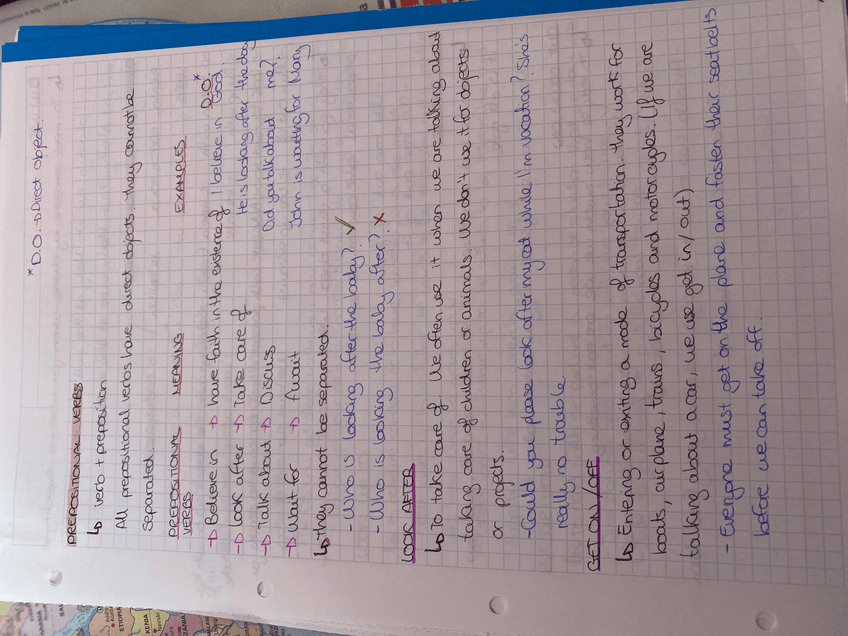 * D.O. → Direct object.
PREPOSITIONAL VERBS
↳ verb + preposition
All prepositional verbs have direct objects. They cannot be
separated.
PREPOSITIONAL VERBS MEANING EXAMPLES D.O.*
→ Believe in → have faith in the existence of I believe in God.
→ Look after → Take care of He is looking after the dog
→ Talk about → Discuss Did you talk about me?
→ Wait for → Await John is waiting for Mary
↳ They cannot be separated.
- Who is looking after the baby? ✓
- Who is looking the baby after? ✗
LOOK AFTER
↳ To take care of. We often use it when we are talking about
taking care of children or animals. We don't use it for objects
or projects.
- Could you please look after my cat while I'm vacation? She's
really no trouble
GET ON/OFF
↳ Entering or exiting a mode of transportation. they work for
boats, airplane, trains, bicycles and motorcycles. (If we are
talking about a car, we use get in/out)
- Everyone must get on the plane and fasten their seatbelts
before we can take off.
ETIOPIA
KENIA
Nairobi